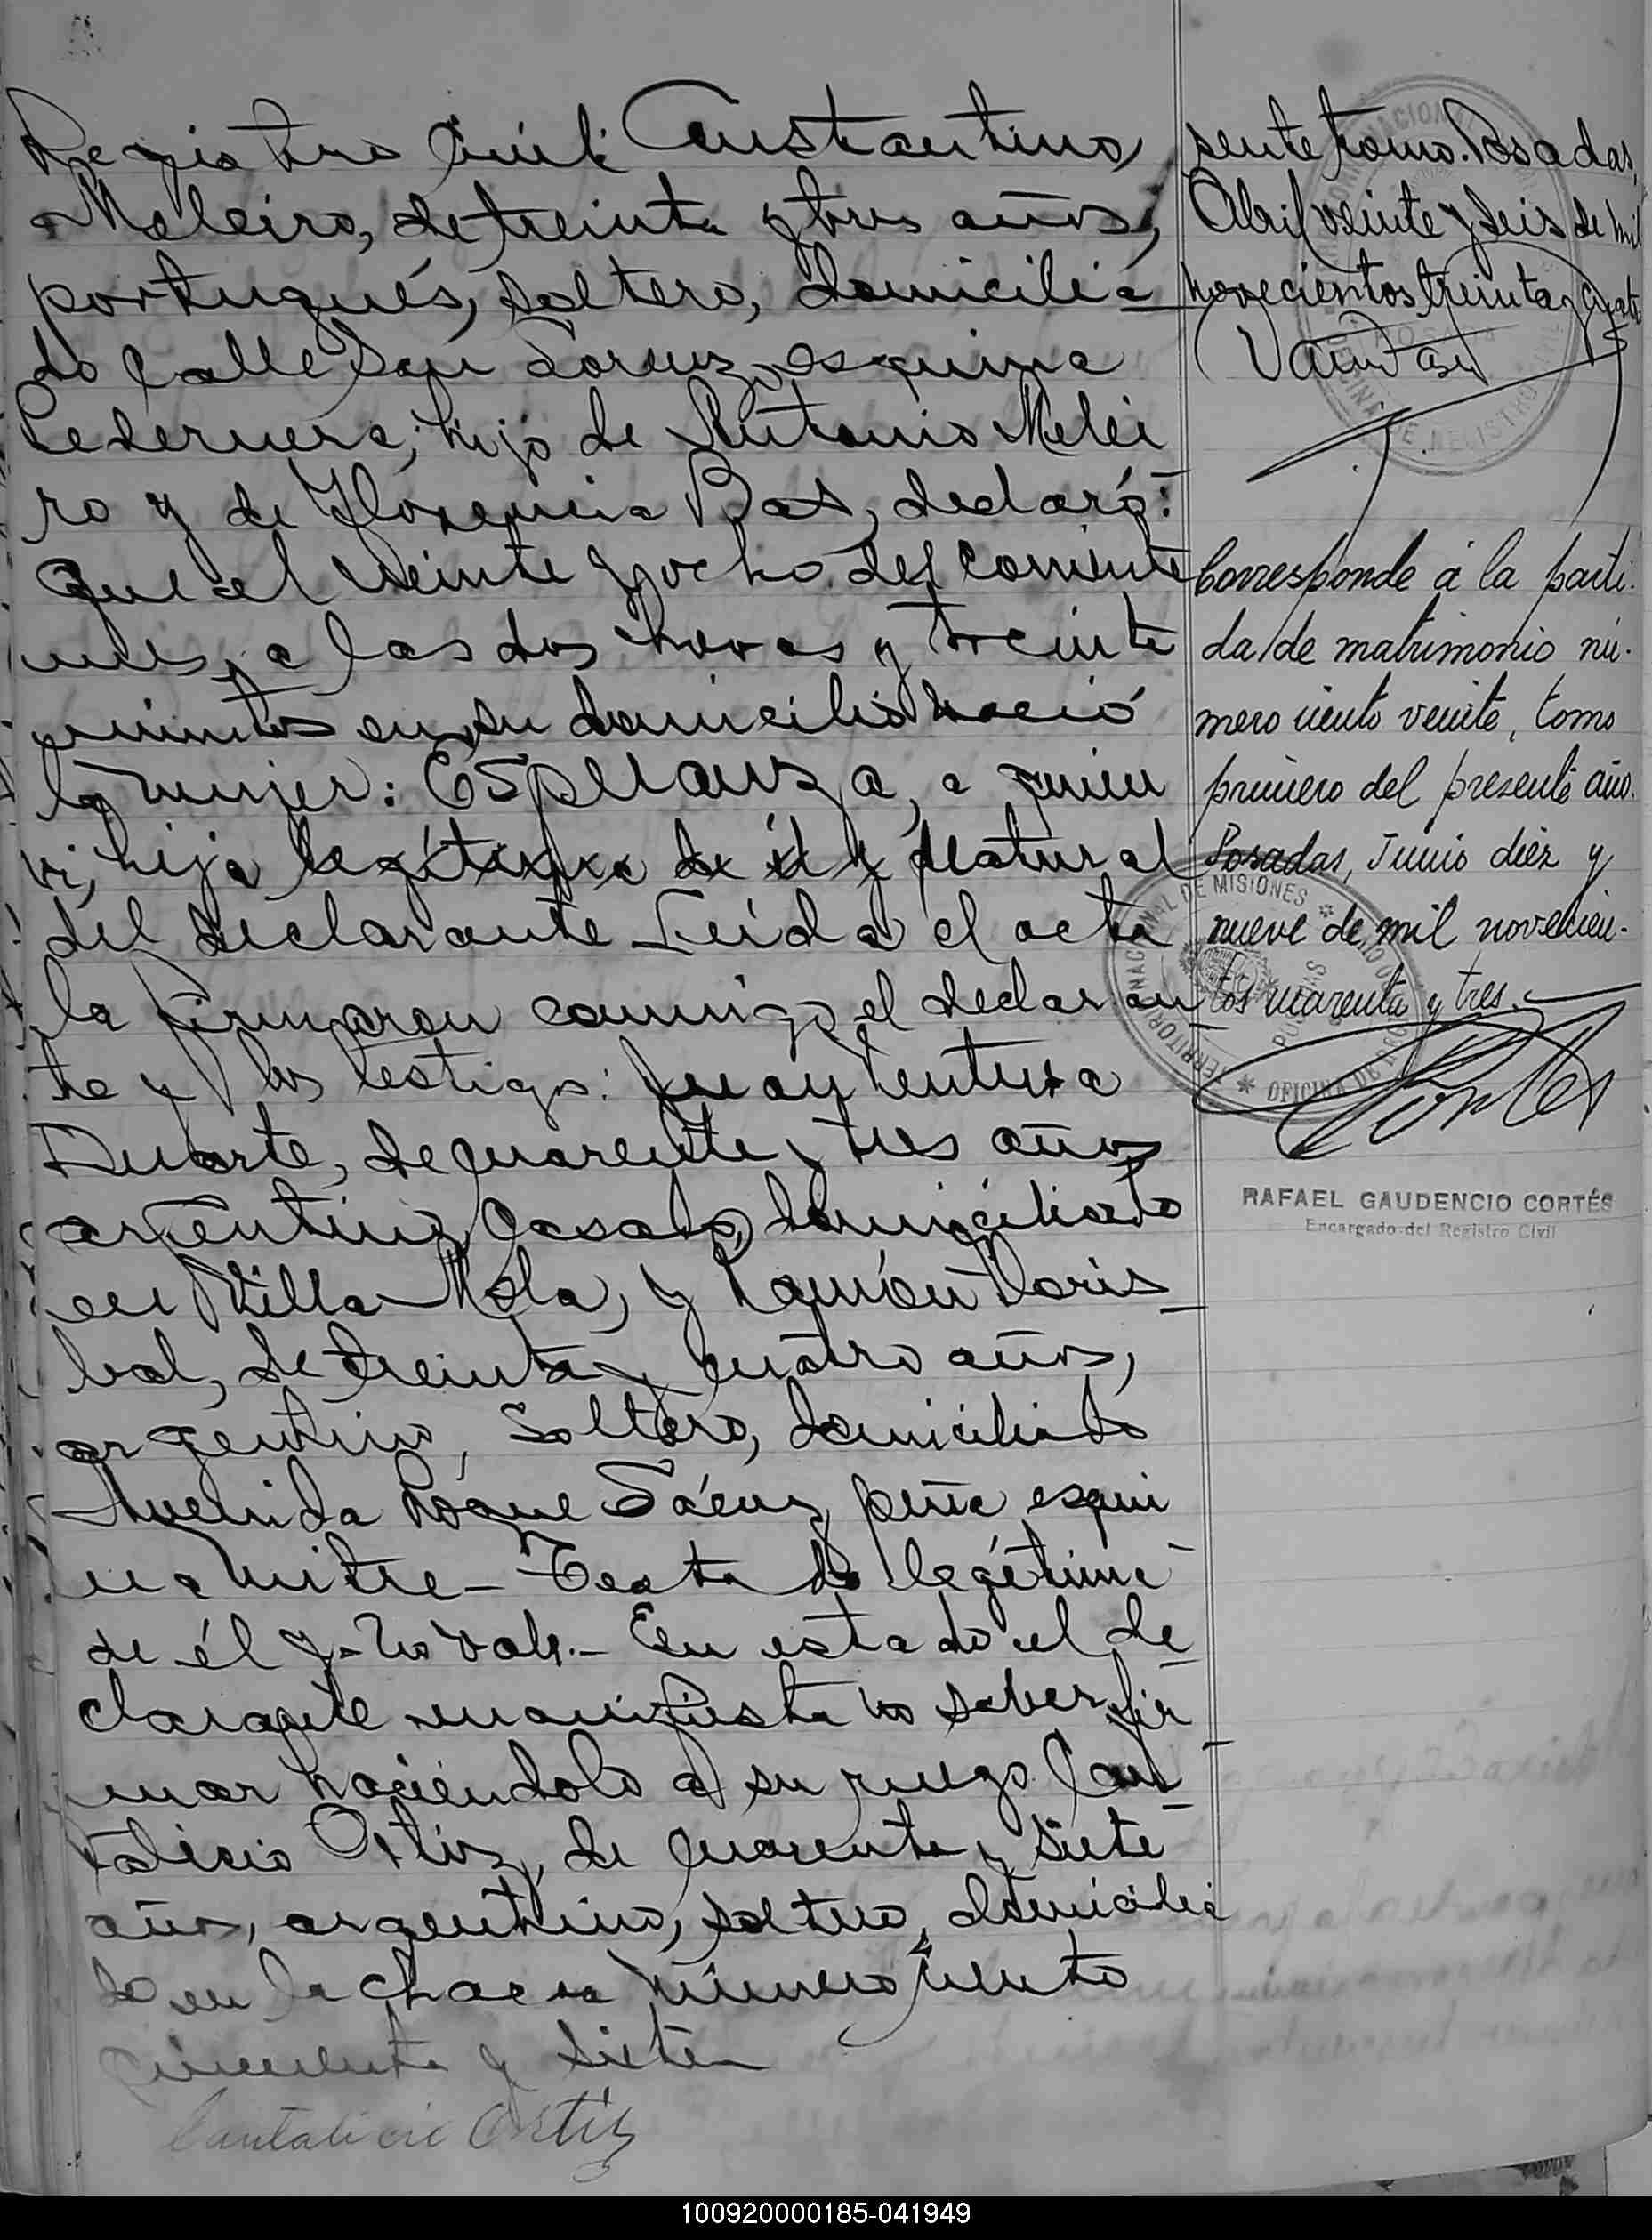 Registro Civil: Constantino
Meleiro, de treinta y tres años,
portugués, soltero, domicilia
do calle San Lorenz, esquina
Pedernera; hijo de Antonio Melei
ro y de Florencia Bas, declaró:
Que el veinte y ocho del corriente
mes, a las dos horas y treinta
minutos en su domicilio nació
la mujer: Esperanza, a quien
vi, hija legítima de él y natural
del declarante Leída el acta
la firmaron conmigo el declaran
te y los testigos: Juan Ventura
Duarte, de quarenta y tres años
argentino, casado, domiciliado
en Villa Mola, y Ramón Doris
bal, de treinta y cuatro años,
argentino, soltero, domiciliado
Avenida Roque Sáenz peña esqui
na Mitre - Testado legítima
de él y - No vale. - En estado el de
clarante manifiesta no saber fir
mar haciéndolo a su ruego Can
talicio Ortiz, de quarenta y siete
años, argentino, soltero, domicilia
do en la chacra número ciento
cincuenta y siete
Cantalicio Ortiz
sente tomo. Posadas,
Abril veinte y seis de mil
novecientos treinta y cuatro
Corresponde á la parti-
da de matrimonio nú-
mero ciento veinte, tomo
primero del presente año.
Posadas, Junio diez y
nueve de mil novecien-
tos cuarenta y tres.
Cortés
RAFAEL GAUDENCIO CORTÉS
Encargado del Registro Civil
100920000185-041949